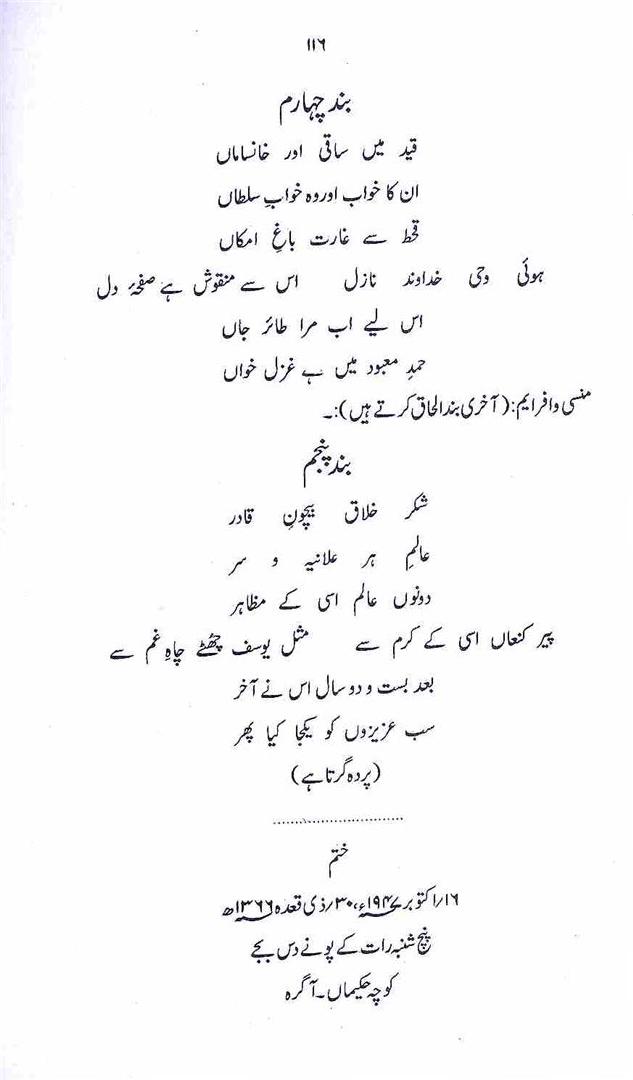 ۱۱۶
بند چہارم
قید میں ساقی اور خانساماں
ان کا خواب اور وہ خوابِ سلطاں
قحط سے غارت باغِ امکاں
ہوئی وحی خداوند نازل اس سے منقوش ہے صفحۂ دل
اس لیے اب مرا طائرِ جاں
حمدِ معبود میں ہے غزل خواں
منسی و افرایم: (آخری بند الحاق کرتے ہیں):۔
بند پنجم
شکر خلاق بیچونِ قادر
عالمِ ہر علانیہ و سر
دونوں عالم اسی کے مظاہر
پیر کنعاں اسی کے کرم سے مثل یوسف چھٹے چاہِ غم سے
بعد بست و دو سال اس نے آخر
سب عزیزوں کو یکجا کیا پھر
(پردہ گرتا ہے)
ختم
۱۶/اکتوبر ۱۹۴۷ء، ۳۰/ذی قعدہ ۱۳۶۶ھ
پنچ شنبہ رات کے پونے دس بجے
کوچہ حکیماں۔ آگرہ